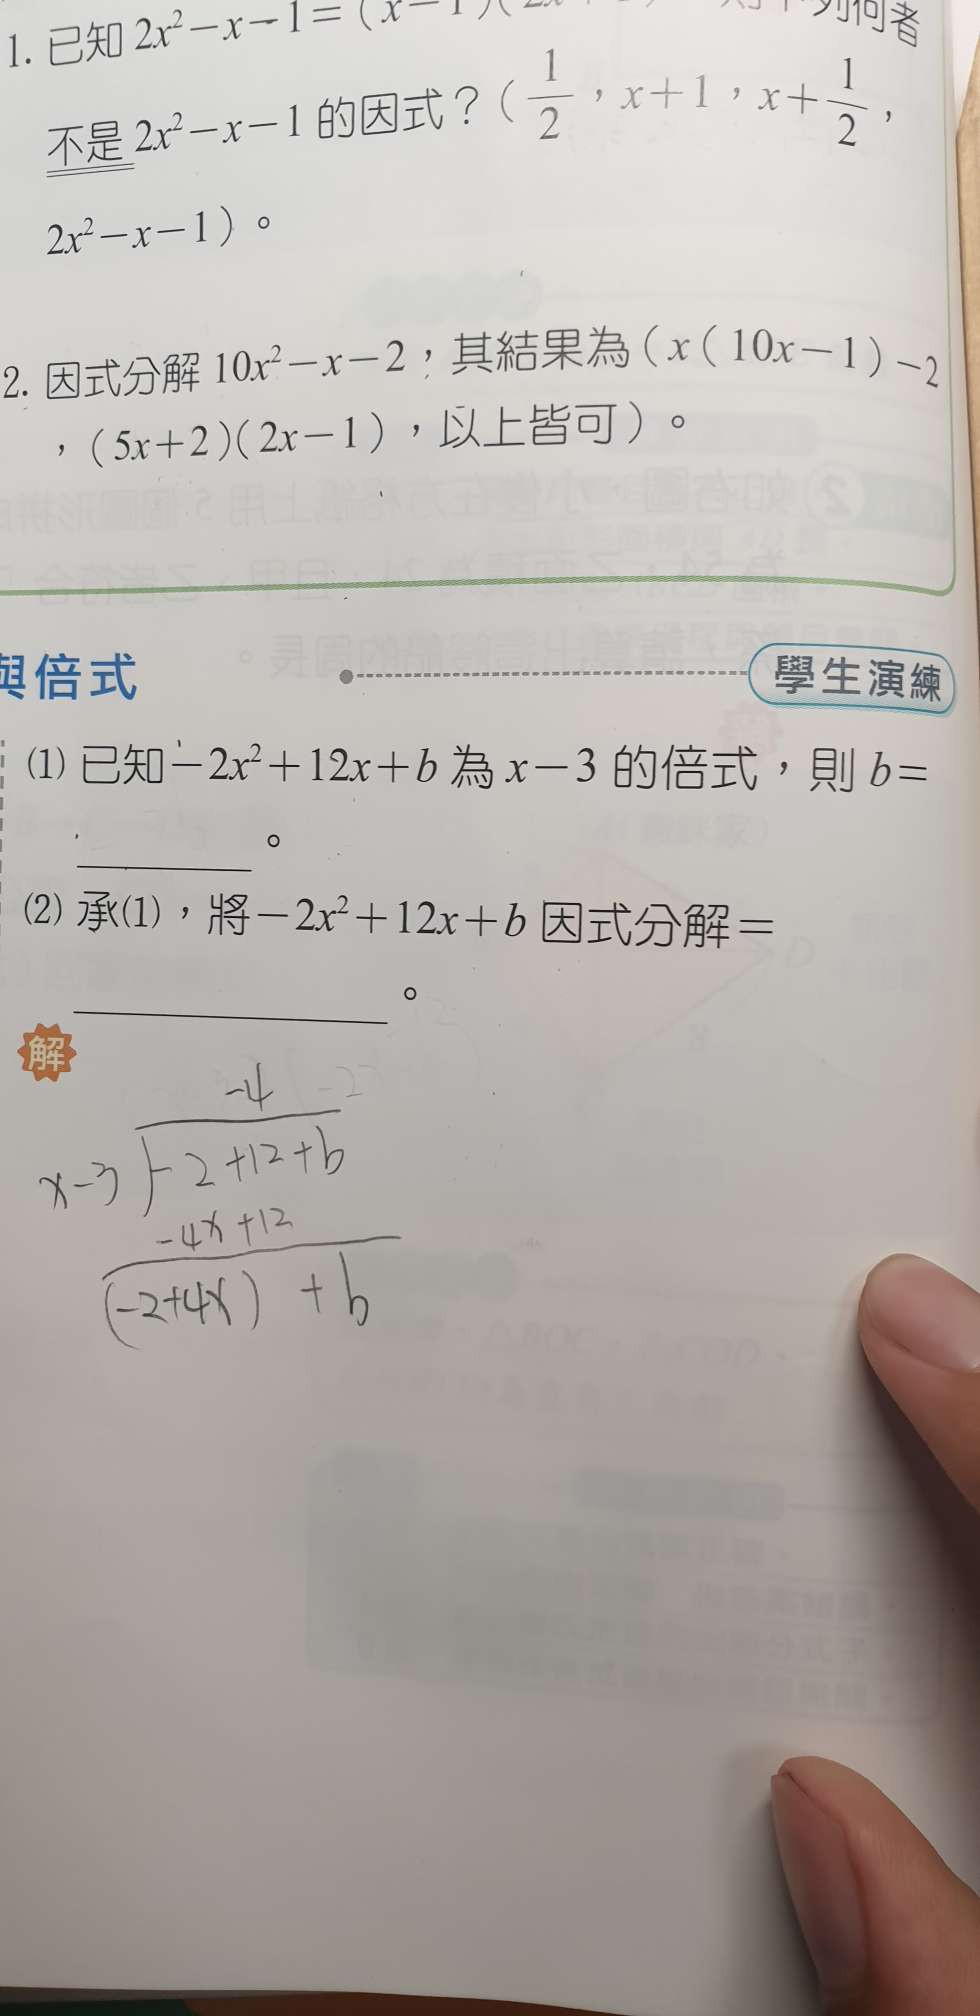 1. 已知 2x²－x－1＝(x－1)( 何者
不是 2x²－x－1 的因式？( 1/2 ，x＋1，x＋1/2，
2x²－x－1 )。
2. 因式分解 10x²－x－2，其結果為 ( x ( 10x－1 )－2
，( 5x＋2 )( 2x－1 ) ，以上皆可 )。
與倍式
學生演練
(1) 已知－2x²＋12x＋b 為 x－3 的倍式，則 b＝
______。
(2) 承(1)，將－2x²＋12x＋b 因式分解＝
______。
解
-4
x-3 ) -2+12+b
-4x+12
(-2+4x) +b